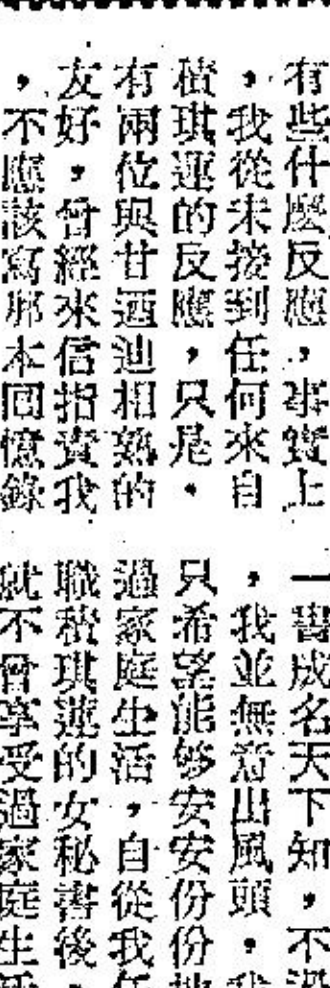 有些什麼反應，事實上
，我從未接到任何來自
積琪蓮的反應，只是，
有兩位與甘迺迪相熟的
友好，曾經來信指責我
，不應該寫那本回憶錄
一書成名天下知，不過
，我並無意出風頭，我
只希望能够安安份份地
過家庭生活，自從我任
職積琪蓮的女秘書後，
就不曾享受過家庭生活